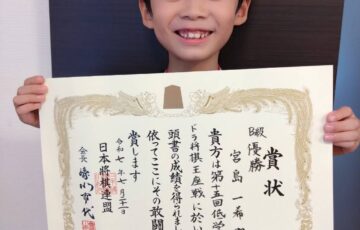 賞状
B級
優勝
宮島一希
貴方は第十五回低学
ドラ将棋王座戦に於い
頭書の成績を得られまし
依ってここにその敢闘
賞します
令和七年七月二十一日
日本将棋連盟
会長